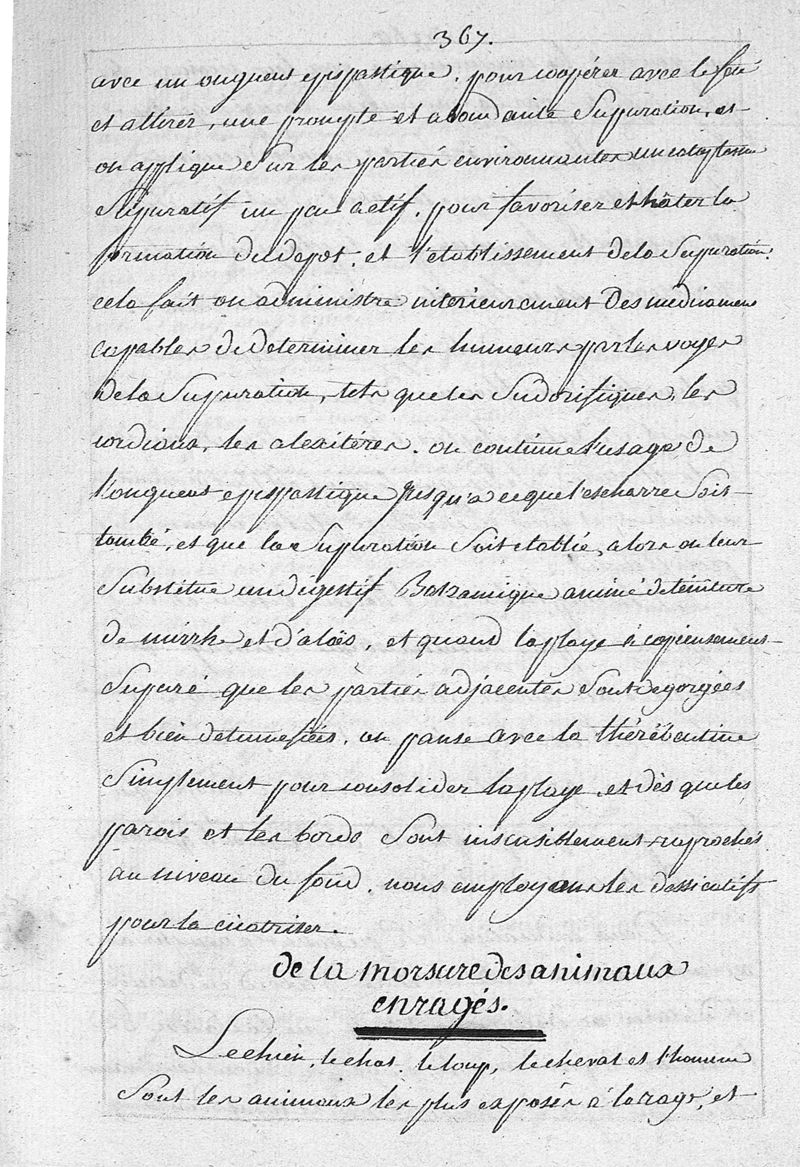 367.
avec un onguent epispastique, pour coopérer avec le feu
et attirer, une prompte et abondante Supuration, et
on applique Sur les parties environnantes un cataplasme
Supuratif un peu actif, pour favoriser et hâter la
formation du depot, et l'etablissement dela Supuration.
cela fait on administre interieurement Des medicamens
capables de Determiner les humeurs par les voyes
dela Supuration, tels que les Sudorifiques, les
cordiaux, les alexitéres. on continue l'usage de
l'onguent epispastique jusqu'a ceque l'escharre Soit
tombé, et que la Supuration Soit etablie, alors on leur
Substitue un digestif Balzamique animé deteinture
de mirrh et d'aloës, et quand la playe à copieusement
Supuré que les parties adjacentes Sont degorgées
et bien detumefiées, on panse avec la thérébentine
Simplement pour consolider la playe, et dès que les
parois et les bords Sont insensiblement raprochés
au niveau du fond, nous employons les dessicatifs
pour la cicatriser.
de la morsure des animaux
enragés.
Le chien, le chat, le loup, le cheval et l'homme
Sont les animaux les plus exposés à la rage, et